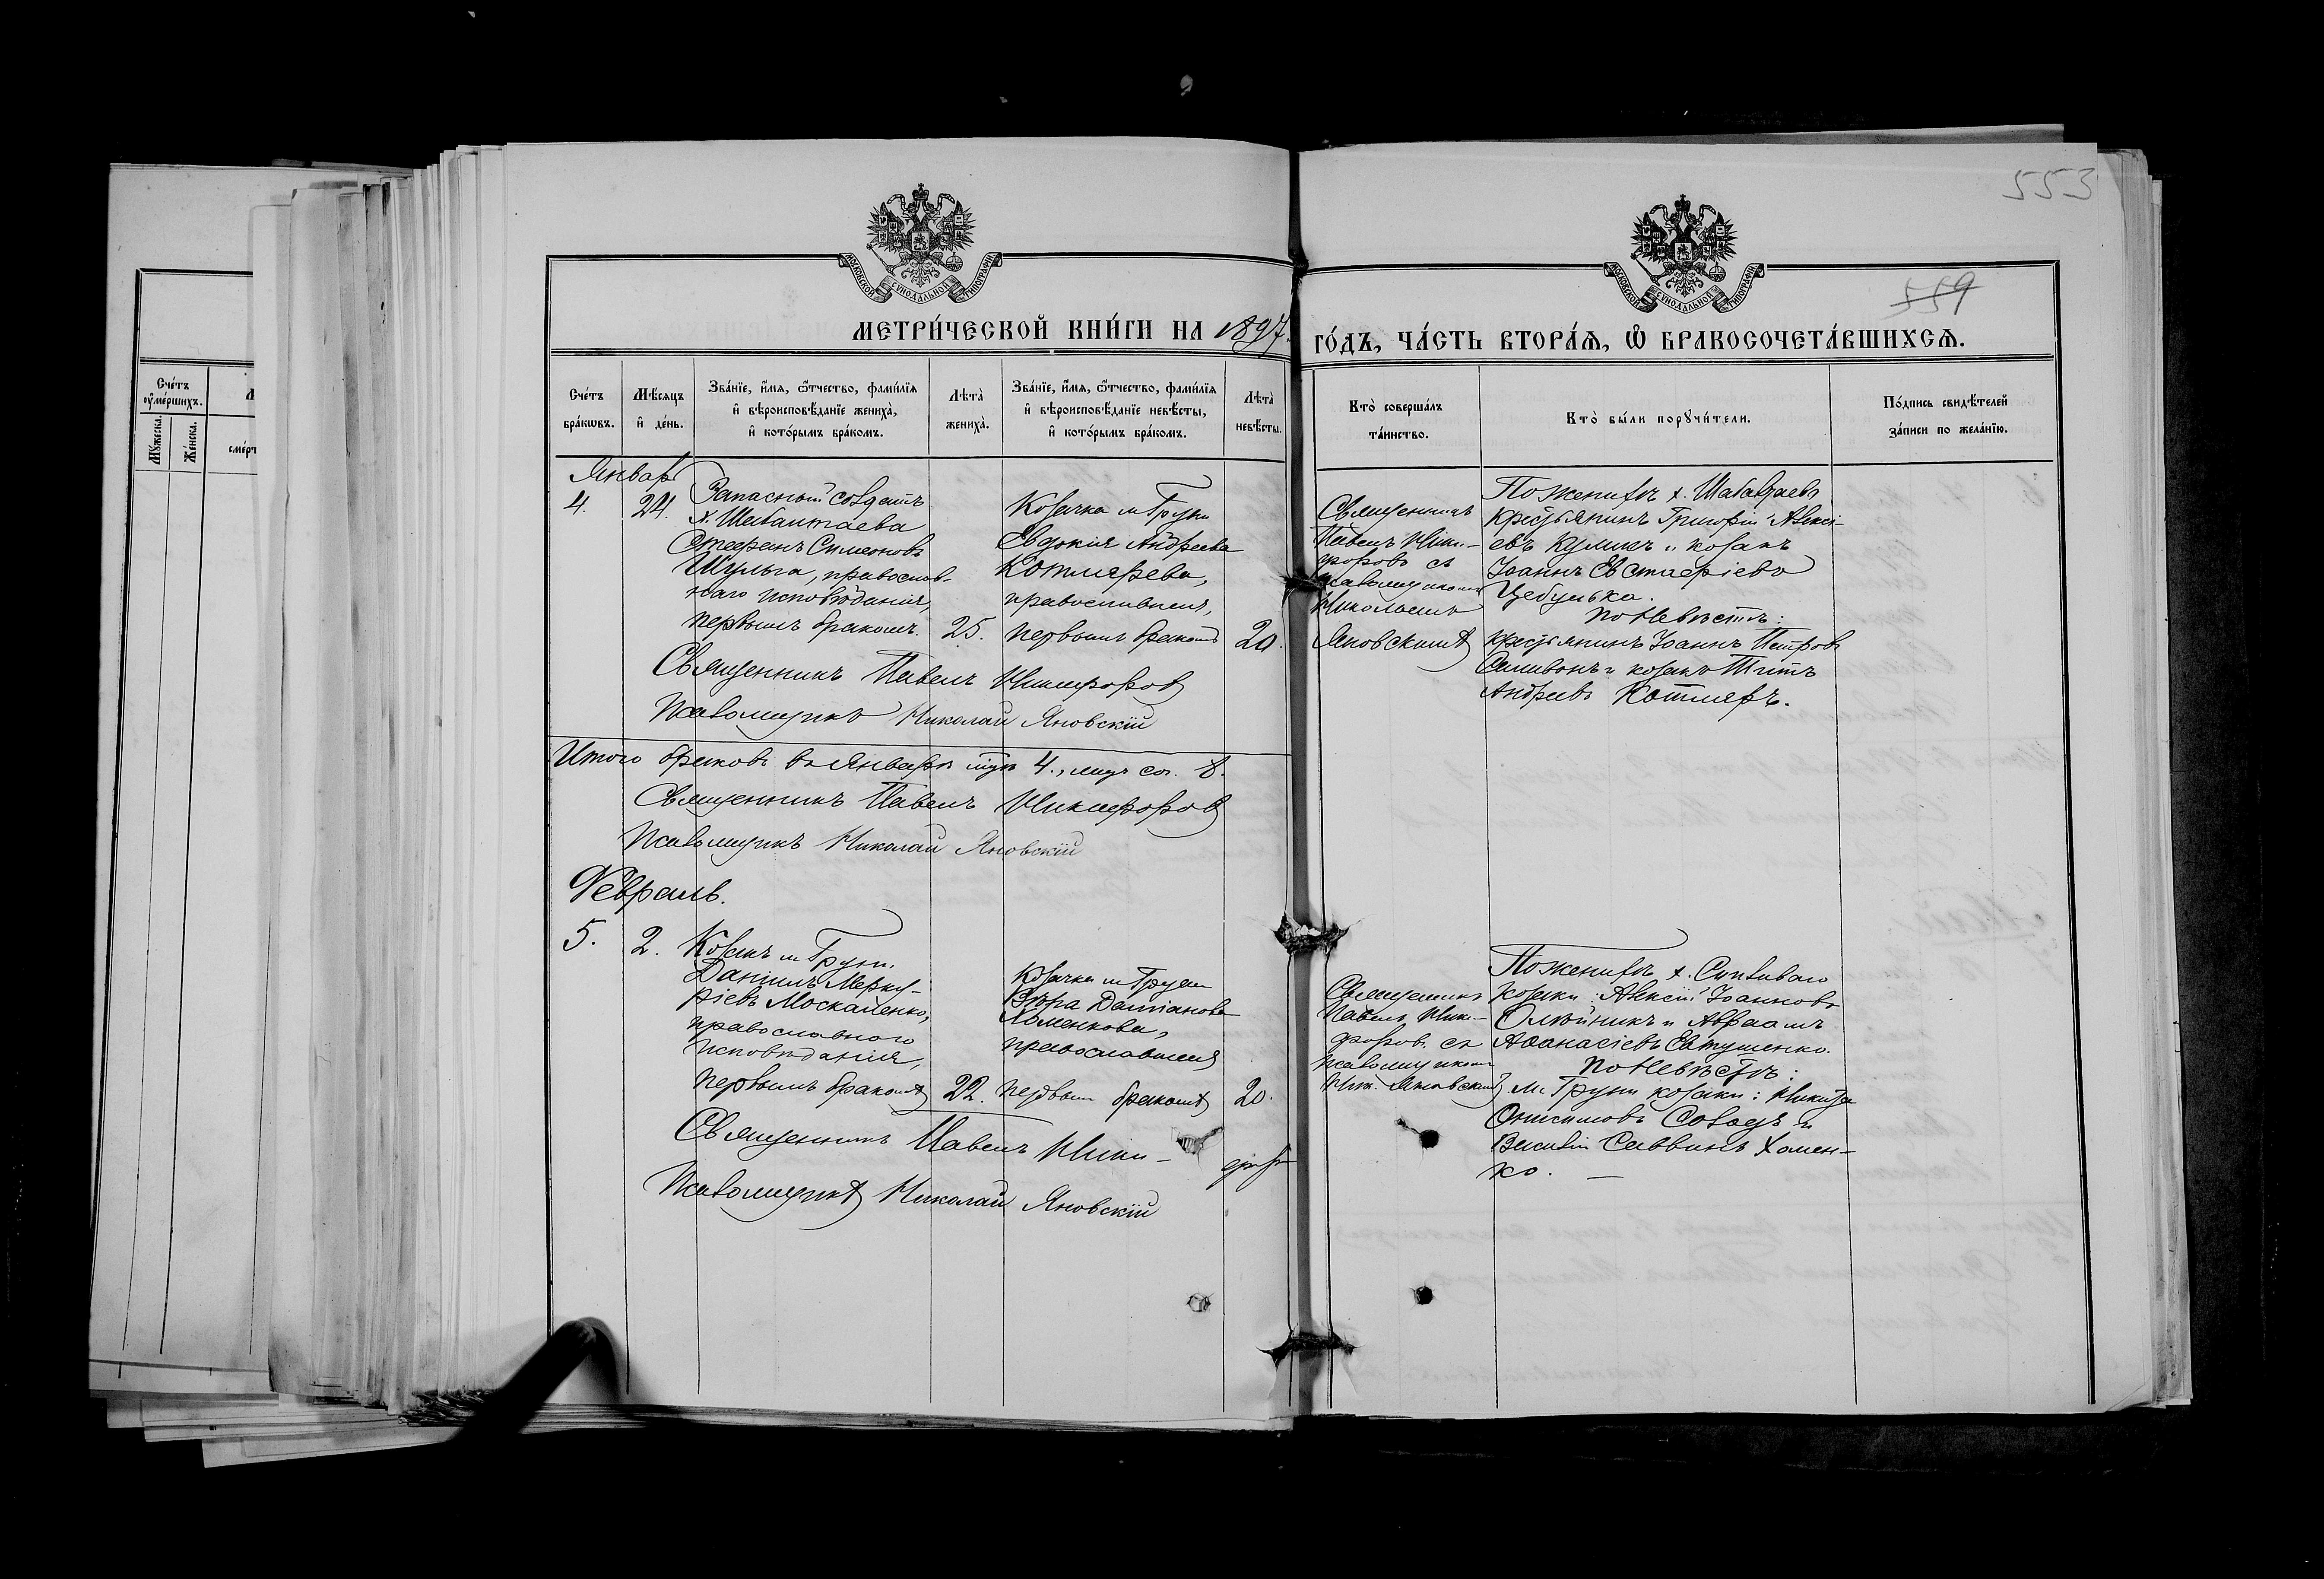 553
559
МОСКОВСКОЙ СѴНОДАЛЬНОЙ ТИПОГРАФІИ
МОСКОВСКОЙ СѴНОДАЛЬНОЙ ТИПОГРАФІИ
МЕТРИ́ЧЕСКОЙ КНИ́ГИ НА 1897.
ГО́ДЪ, ЧА́СТЬ ВТОРА́Ѧ, Ѡ҆ БРАКОСОЧЕТА́ВШИХСѦ.
Сче́тъ
ᲂу҆ме́ршихъ.
Мꙋ́жеска.
Же́нска.
Сче́тъ
бра́кѡвъ.
Мѣ́сяцъ
и҆ де́нь.
Зва́нїе, и҆́мѧ, ѻ҆́тчество, фами́лїѧ
и҆ вѣроисповѣ́данїе жениха̀,
и҆ кото́рымъ бра́комъ.
Лѣта̀
жениха̀.
Зва́нїе, и҆́мѧ, ѻ҆́тчество, фами́лїѧ
и҆ вѣроисповѣ́данїе невѣ́сты,
и҆ кото́рымъ бра́комъ.
Лѣта̀
невѣ́сты.
Кто̀ соверша́лъ
та́инство.
Кто̀ бы́ли порꙋчи́тели.
По́дпись свидѣ́телей
за́писи по жела́нїю.
Январь
4.
24.
Запасный солдатъ
х. Шабалтаева
Стефанъ Симеоновъ
Шульга, православ-
наго исповѣданія,
первымъ бракомъ.
25.
Козачка м Груни
Евдокія Андреева
Котлярева,
православная,
первымъ бракомъ
20.
Священникъ
Павелъ Ники-
форовъ съ
псаломщикомъ
Николаемъ
Яновскимъ
По женихѣ х. Шабалтаева
крестьянинъ Григорій Алексі-
евъ Куликъ и козакъ
Іоаннъ Евстафіевъ
Цебулька.
по Невѣстѣ:
крестьянинъ Іоаннъ Петровъ
Селивонъ и козакъ Титъ
Андреевъ Котляръ.
Священникъ Павелъ Никифоровъ
Псаломщикъ Николай Яновскій
Итого браковъ въ Январѣ 4., 8.
Священникъ Павелъ Никифоровъ
Псаломщикъ Николай Яновскій
Февраль.
5.
2.
Козакъ м Груни.
Даніилъ Мерку-
ріевъ Москаленко,
православнаго
исповѣданія,
первымъ бракомъ
22.
Козачка м Груни
Вѣра Даміанова
Хоменкова,
православная
первымъ бракомъ
20.
Священникъ
Павелъ Ники-
форовъ съ
псаломщикомъ
Ник. Яновскимъ
По женихѣ х.
козаки: Алексій Іоанновъ
Олейникъ и Авраамъ
Аѳанасіевъ Евтушенко.
по Невѣстѣ:
м. Груни козаки: Никита
Онисимовъ Солодъ и
Василій Саввинъ Хомен-
ко. —
Священникъ Павелъ Ники-
Псаломщикъ Николай Яновскій